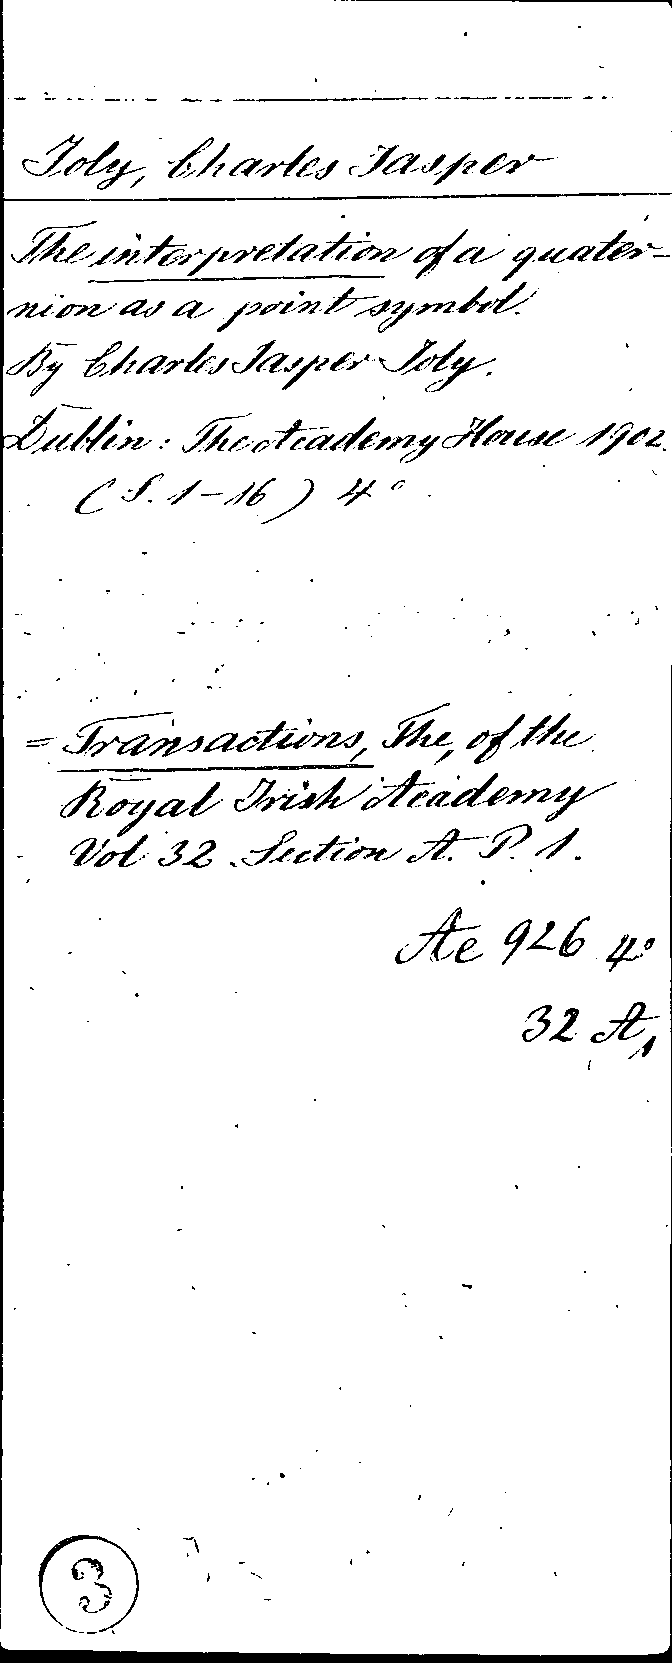 Joly, Charles Jasper
The interpretation of a quater-
nion as a point symbol.
By Charles Jasper Joly.
Dublin: The Academy House 1902.
(S. 1-16) 4°
= Transactions, The, of the
Royal Irish Academy
Vol 32 Section A. P. 1.
Ae 926 4°
32 A,1
3